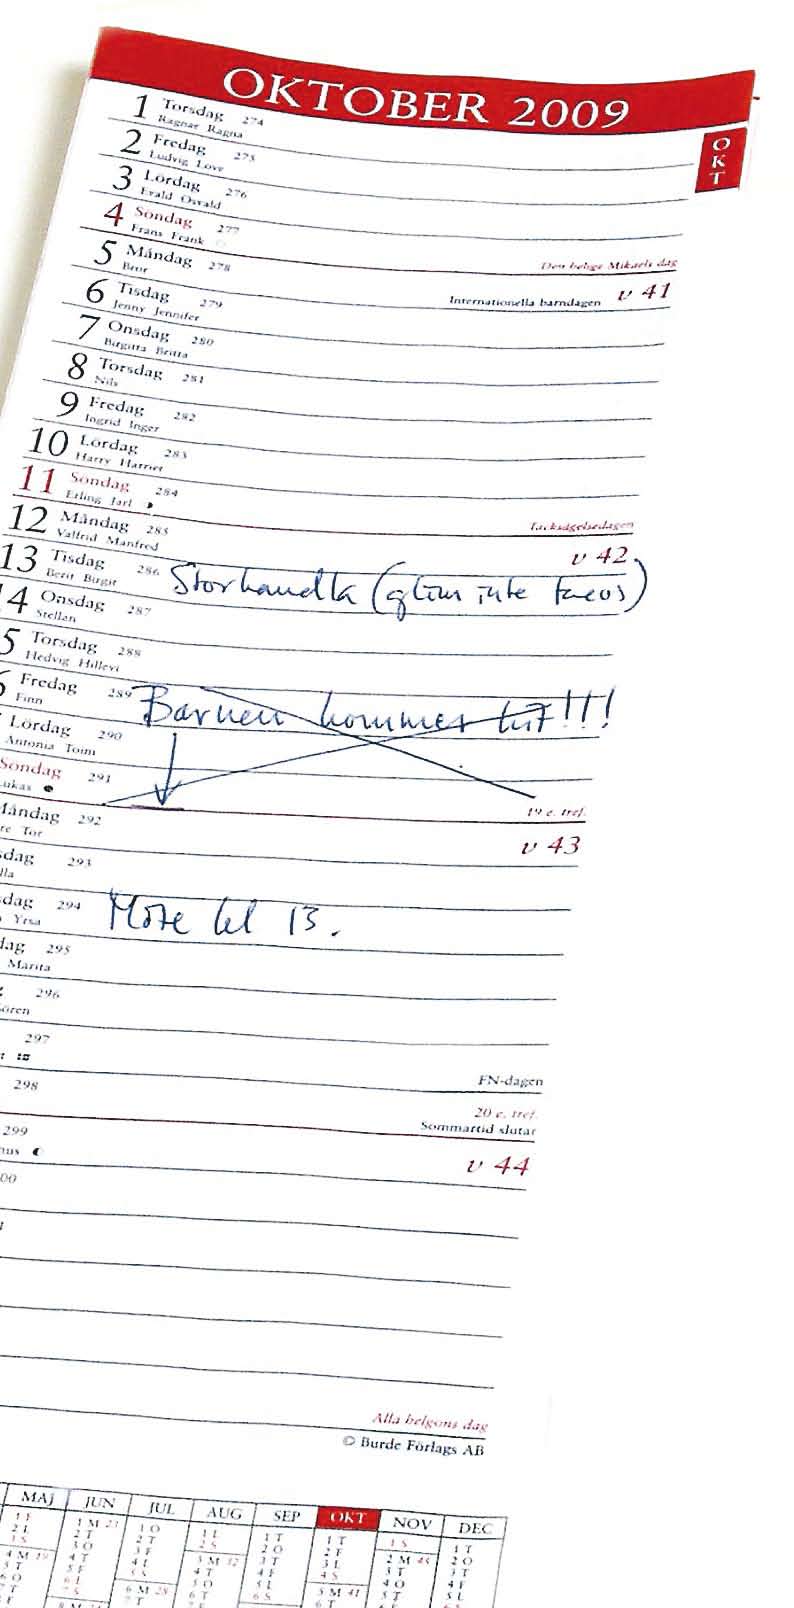 OKTOBER 2009
OKT
1 Torsdag 274
Ragnar Ragna
2 Fredag 275
Ludvig Love
3 Lördag 276
Evald Osvald
4 Söndag 277
Frans Frank
Den helige Mikaels dag
5 Måndag 278
Bror
Internationella barndagen v 41
6 Tisdag 279
Jenny Jennifer
7 Onsdag 280
Birgitta Britta
8 Torsdag 281
Nils
9 Fredag 282
Ingrid Inger
10 Lördag 283
Harry Harriet
11 Söndag 284
Erling Jarl
Tacksägelsedagen
12 Måndag 285
Valfrid Manfred
v 42
13 Tisdag 286 Storhandla (glöm inte tacos)
Berit Birgit
4 Onsdag 287
Stellan
5 Torsdag 288
Hedvig Hillevi
Fredag 289 Barnen kommer hit!!!
Finn
Lördag 290
Antonia Toini
Söndag 291
ukas
19 e. tref.
Måndag 292
re Tor
v 43
sdag 293
lla
sdag 294 Möte kl 13.
Yrsa
dag 295
Marita
296
ören
297
FN-dagen
298
20 e. tref.
Sommartid slutar
299
v 44
00
Alla helgons dag
© Burde Förlags AB
MAJ JUN JUL AUG SEP OKT NOV DEC